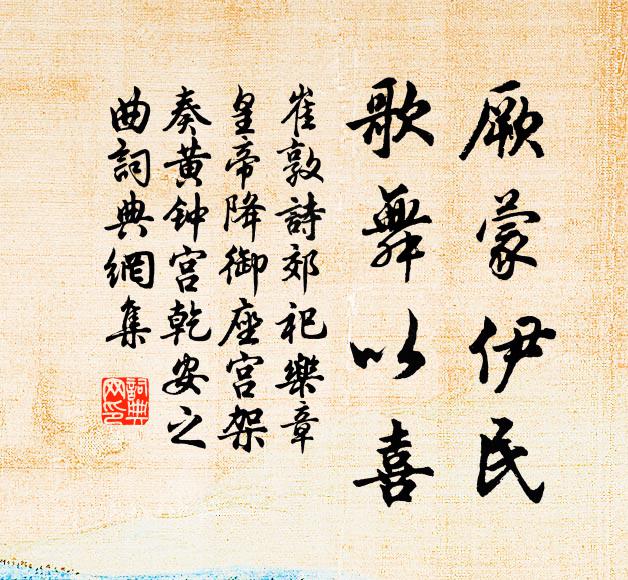 厥蒙伊民
歌舞以喜
崔敦詩郊祀樂章
皇帝降御座宫架
奏黄钟宫乾安之
曲詞典網集
詞典
网印